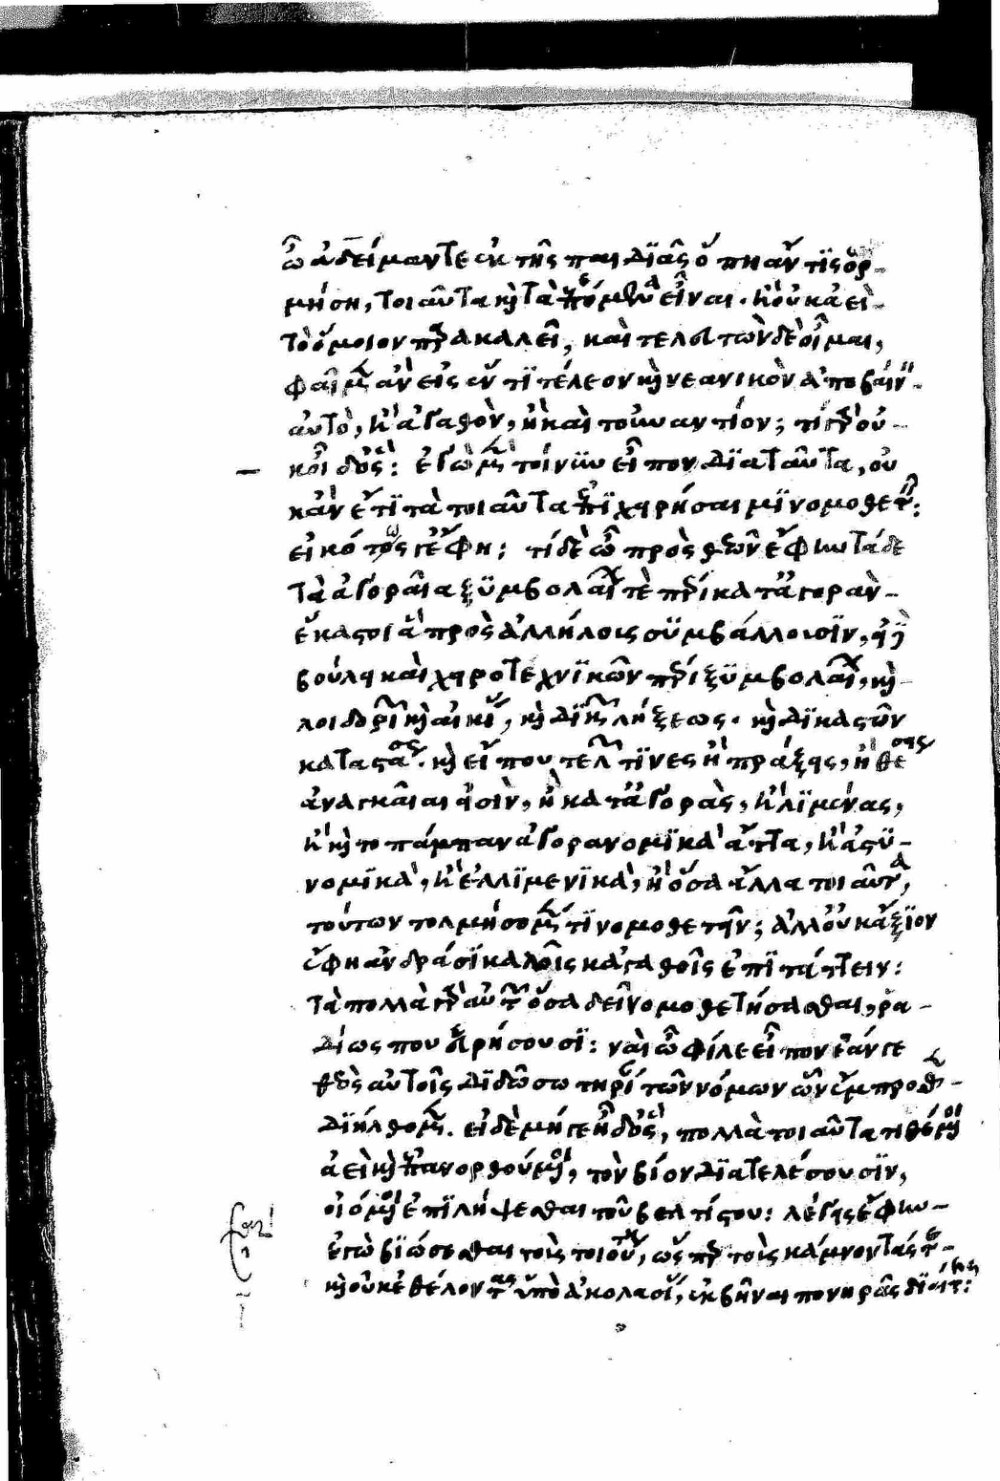 ὦ ἀδείμαντε ἐκ τῆς παιδϊᾶς ὅπη ἄν τϊς ὁρ-
μήση, τοιαῦτα κ̀ τὰ ἑπόμενα εἶναι. ἢ οὐκ ἀεὶ
τὸ ὅμοιον παρακαλεῖ, καὶ τελευτῶν δὲ οἶμαι,
φαῖμεν ἂν εἰς ἕν τϊ τέλεον κ̀ νεανικὸν ἀποβαίνειν
αὐτὸ, ἢ ἀγαθὸν, ἢ καὶ τοὐναντίον; τί γὰρ οὐ-
κ ἦ δὸς: ἐγὼ μὲν τοίνυν εἶπον δϊὰ ταῦτα, οὐ
κ ἂν ἔτϊ τὰ τοιαῦτα ἐπϊχειρήσαιμϊ νομοθετεῖν:
εἰκότως γ' ἔφη: τί δὲ ὦ πρὸς θεῶν ἔφην τάδε
τὰ ἀγοραῖα ξϋμβολαίων τὲ πέρι κατ' ἀγορὰν
ἕκαστοι ἃ πρὸς ἀλλήλοις σϋμβάλλουσϊν, εἰ δὲ
βούλει καὶ χειροτεχνϊκῶν πέρι ξϋμβολαίων, κ̀
λοιδοριῶν κ̀ αἰκίας, κ̀ δϊκῶν λήξεως. κ̀ δϊκαστῶν
καταστάσεως. κ̀ εἴ που τελῶν τϊνες ἢ πράξεις, ἢ θέσεις
ἀναγκαῖαι εἰσὶν, ἢ κατ' ἀγορὰς, ἢ λϊμένας,
ἢ κ̀ τοπάμπαν ἀγορανομϊκὰ ἄττα, ἢ ἀστϋ-
νομϊκὰ, ἢ ἐλλϊμενϊκὰ, ἢ ὅσα ἄλλα τοιαῦτα,
τούτων τολμήσομέν τϊ νομοθετεῖν; ἀλλ' οὐκ ἄξϊον
ἔφη ἀνδράσϊ καλοῖς κἀγαθοῖς ἐπϊτάττειν:
τὰ πολλὰ γὰρ αὐτῶν ὅσα δεῖ νομοθετήσασθαι, ρα-
δίως που εὑρήσουσϊ: ναὶ ὦ φίλε εἶπον ἐάν γε
θεὸς αὐτοῖς δϊδῶ σωτηρίαν τῶν νόμων ὧν ἔμπροσθεν
δϊήλθομεν. εἰ δὲ μή γε ἦ δὸς, πολλὰ τοιαῦτα τιθέμενοι
ἀεὶ κ̀ ἐπανορθούμενοι, τὸν βίον δϊατελέσουσϊν,
οἰόμενοι ἐπϊλήψεσθαι τοῦ βελτίστου: λέγεις ἔφην
ἐγὼ βϊώσεσθαι τοὺς τοιούτους, ὥσπερ τοὺς κάμνοντάς τε
κ̀ οὐκ ἐθέλοντας ὑπὸ ἀκολασίας, ἐκβῆναι πονηρᾶς δϊαίτης: